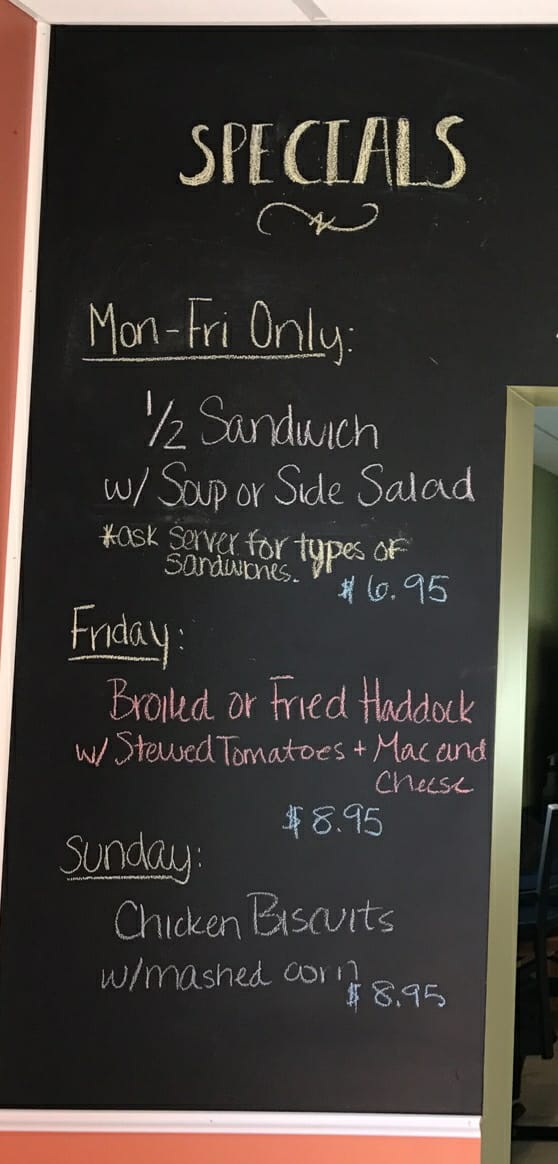 SPECIALS
Mon-Fri Only:
1/2 Sandwich
w/ Soup or Side Salad
*ask Server for types of
Sandwiches.
$6.95
Friday:
Broiled or Fried Haddock
w/ Stewed Tomatoes + Mac and
Cheese
$8.95
Sunday:
Chicken Biscuits
w/mashed corn
$8.95